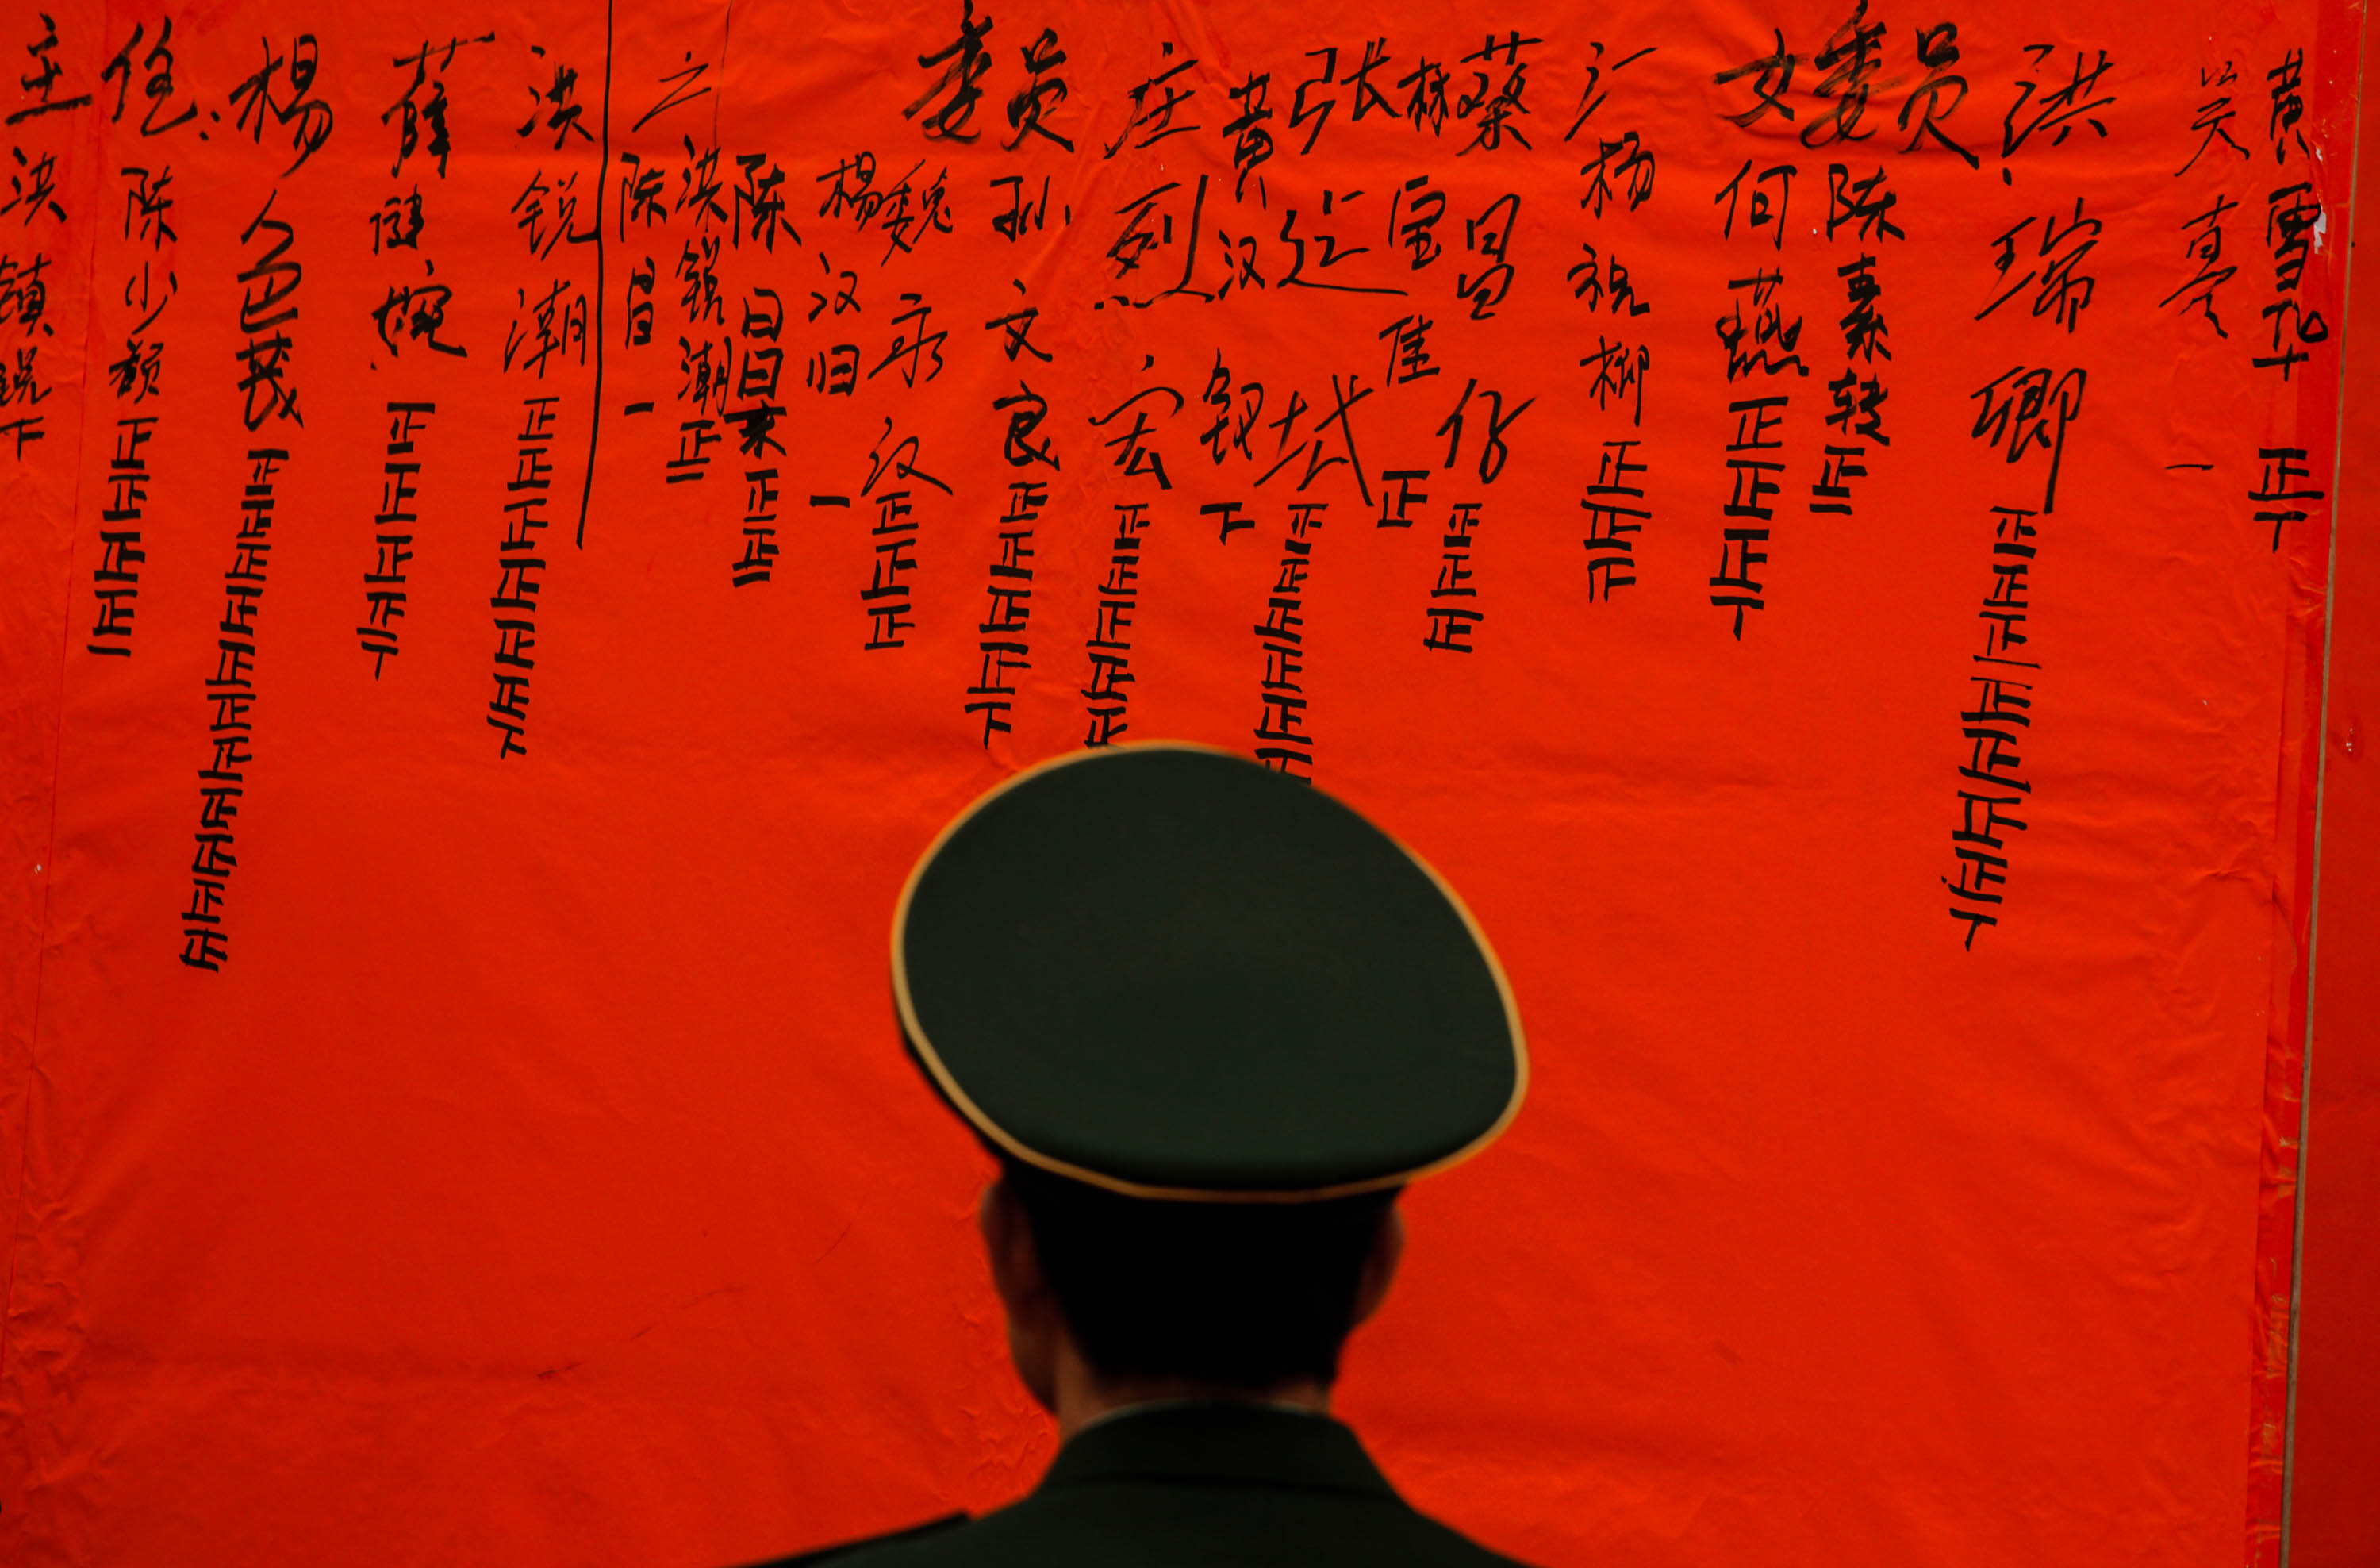 主任:
洪镇锐下
陈少颜正正正正一
杨色茂正正正正正正正正正正正
薛婉正正正正丅
洪锐潮正正正正正正下
陈昌一
洪锐潮正二
陈昌来正正二
杨汉归一
委员
魏永汉正正正
孙文良正正正正下
庄烈宏正正正正正
黄汉钗下
张建城正正正正正
林宝佳正
蔡昌仔正正正
杨祝柳正正下
女委员:
何燕正正正丅
陈素转正二
洪瑞卿正正正正正正正丅
吴一
黄雪华正丅